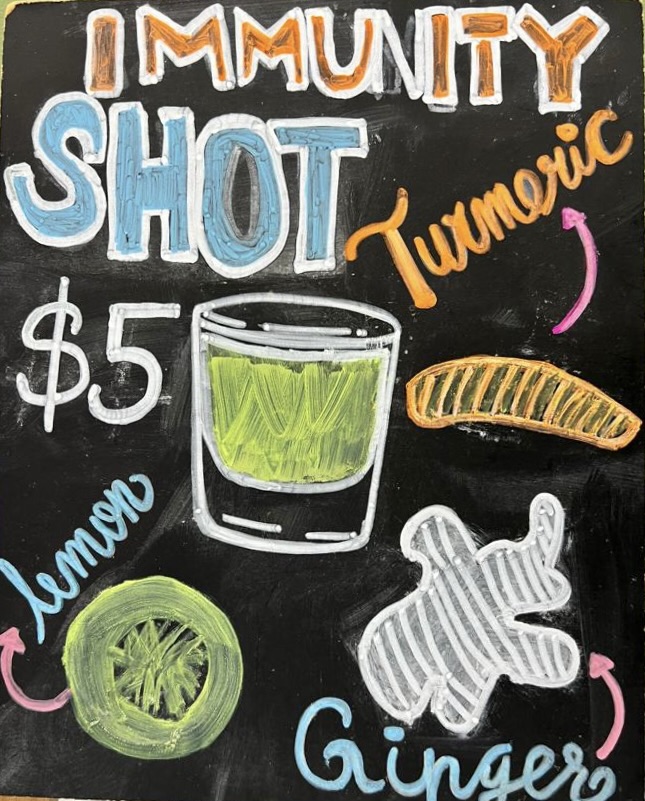 IMMUNITY
SHOT
Turmeric
$5
lemon
Ginger